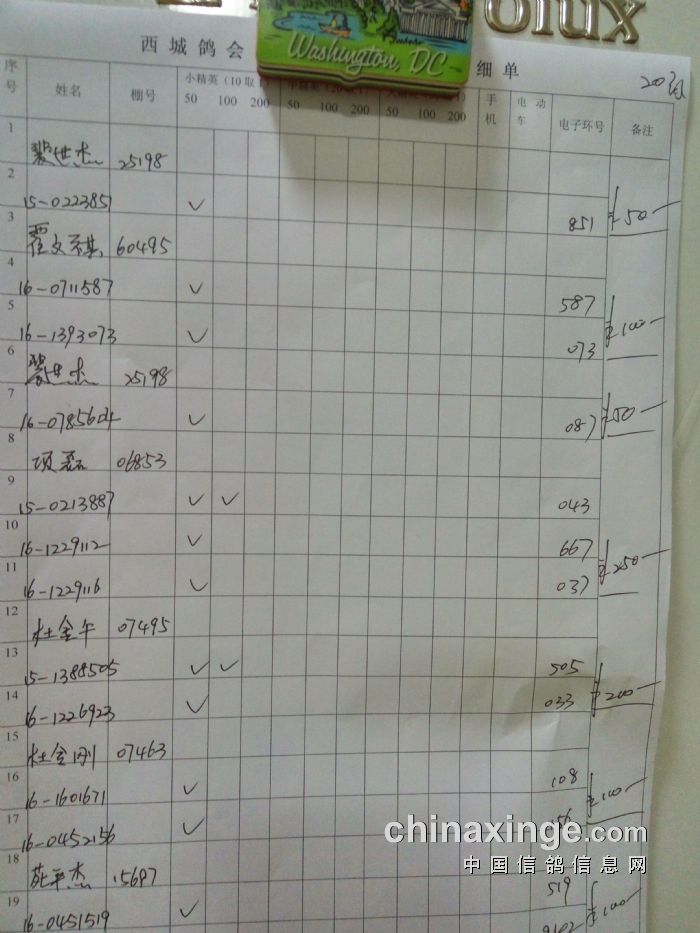 Washington, DC
olux
西城鸽会 细单
序号 姓名 棚号 小精英（10取1） 手机 电动车 电子环号 备注
50 100 200 50 100 200 50 100 200
1 裴世杰 25198
2 15-0223851 ✓ 851 50
3 霍文琪 60495
4 16-0711587 ✓ 587
5 16-1393073 ✓ 073 100
6 裴世杰 25198
7 16-0785604 ✓ 087 50
8 项磊 06853
9 15-0213887 ✓ ✓ 043
10 16-1229112 ✓ 667
11 16-1229116 ✓ 037 250
12 杜金午 07495
13 15-1388505 ✓ ✓ 505
14 16-1226923 ✓ 033 200
15 杜金刚 07463
16 16-1601671 ✓ 108 100
17 16-0452156 ✓ 156
chinaxinge.com
中国信鸽信息网
18 平杰 15697
19 16-0451519 ✓ 519 100